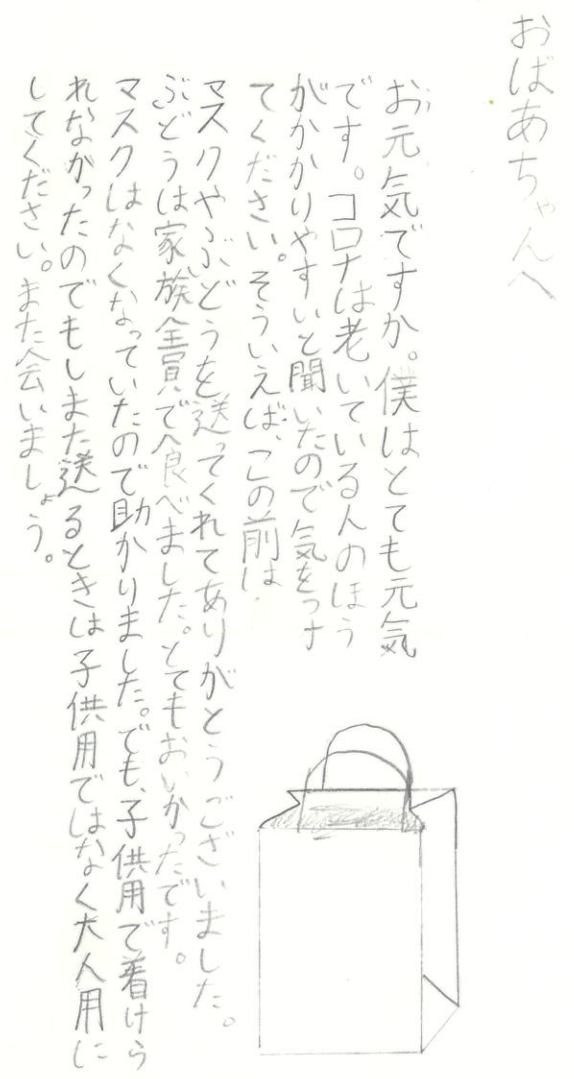 おばあちゃんへ
お元気ですか。僕はとても元気
です。コロナは老いている人のほう
がかかりやすいと聞いたので気をつけ
てください。そういえば、この前は
マスクやぶどうを送ってくれてありがとうございました。
ぶどうは家族全員で食べました。とてもおいかったです。
マスクはなくなっていたので助かりました。でも、子供用で着けら
れなかったのでもしまた送るときは子供用ではなく大人用に
してください。また会いましょう。